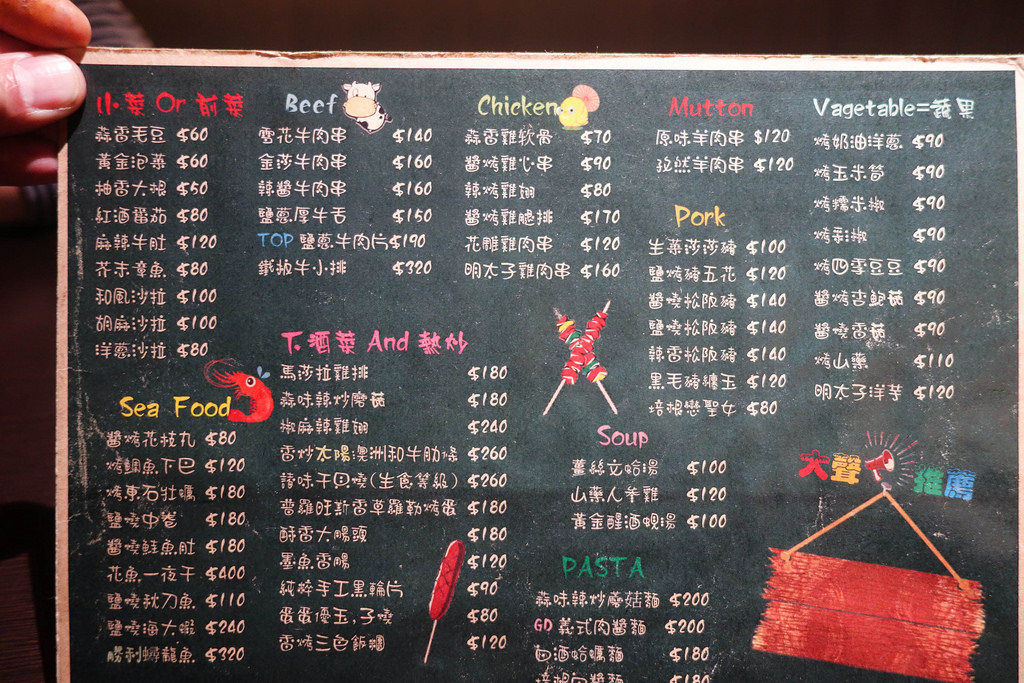 小菜 Or 前菜
蒜香毛豆 $60
黃金泡菜 $60
柚香大根 $50
紅酒番茄 $80
麻辣牛肚 $120
芥末章魚 $80
和風沙拉 $100
胡麻沙拉 $100
洋蔥沙拉 $80
Sea Food
醬烤花枝丸 $80
烤鯛魚下巴 $120
烤東石牡蠣 $180
鹽燒中卷 $180
醬燒鮭魚肚 $180
花魚一夜干 $400
鹽燒秋刀魚 $110
鹽燒海大蝦 $240
勝利鱘龍魚 $320
Beef
雪花牛肉串 $140
金莎牛肉串 $160
辣醬牛肉串 $160
鹽蔥厚牛舌 $150
TOP 鹽蔥牛肉片 $190
鐵板牛小排 $320
下酒菜 And 熱炒
馬莎拉雞排 $180
蒜味辣炒蘑菇 $180
椒麻辣雞翅 $240
香炒太陽澳洲和牛肋條 $260
讚味干貝燒(生食等級) $260
普羅旺斯香草羅勒烤蛋 $180
酥香大腸頭 $180
墨魚香腸 $120
純粹手工黑輪片 $90
蛋蛋優玉,子燒 $80
香烤三色飯糰 $120
Chicken
蒜香雞软骨 $70
醬烤雞心串 $90
辣烤雞翅 $80
醬烤雞腿排 $170
花雕雞肉串 $120
明太子雞肉串 $160
Mutton
原味羊肉串 $120
孜然羊肉串 $120
Pork
生菜莎莎豬 $100
鹽烤豬五花 $120
醬燒松阪豬 $140
鹽燒松阪豬 $140
辣香松阪豬 $140
黑毛豬纏玉 $120
培根戀聖女 $80
Soup
薑絲文蛤湯 $100
山藥人參雞 $120
黃金醺酒蜆湯 $100
PASTA
蒜味辣炒蘑菇麵 $200
GD 義式肉醬麵 $200
白酒蛤蠣麵 $180
培根白醬麵 $180
Vagetable=蔬果
烤奶油洋蔥 $90
烤玉米筍 $90
烤糯米椒 $90
烤彩椒 $90
烤四季豆豆 $90
醬烤杏鮑菇 $90
醬燒香菇 $90
烤山藥 $110
明太子洋芋 $120
大聲
推薦